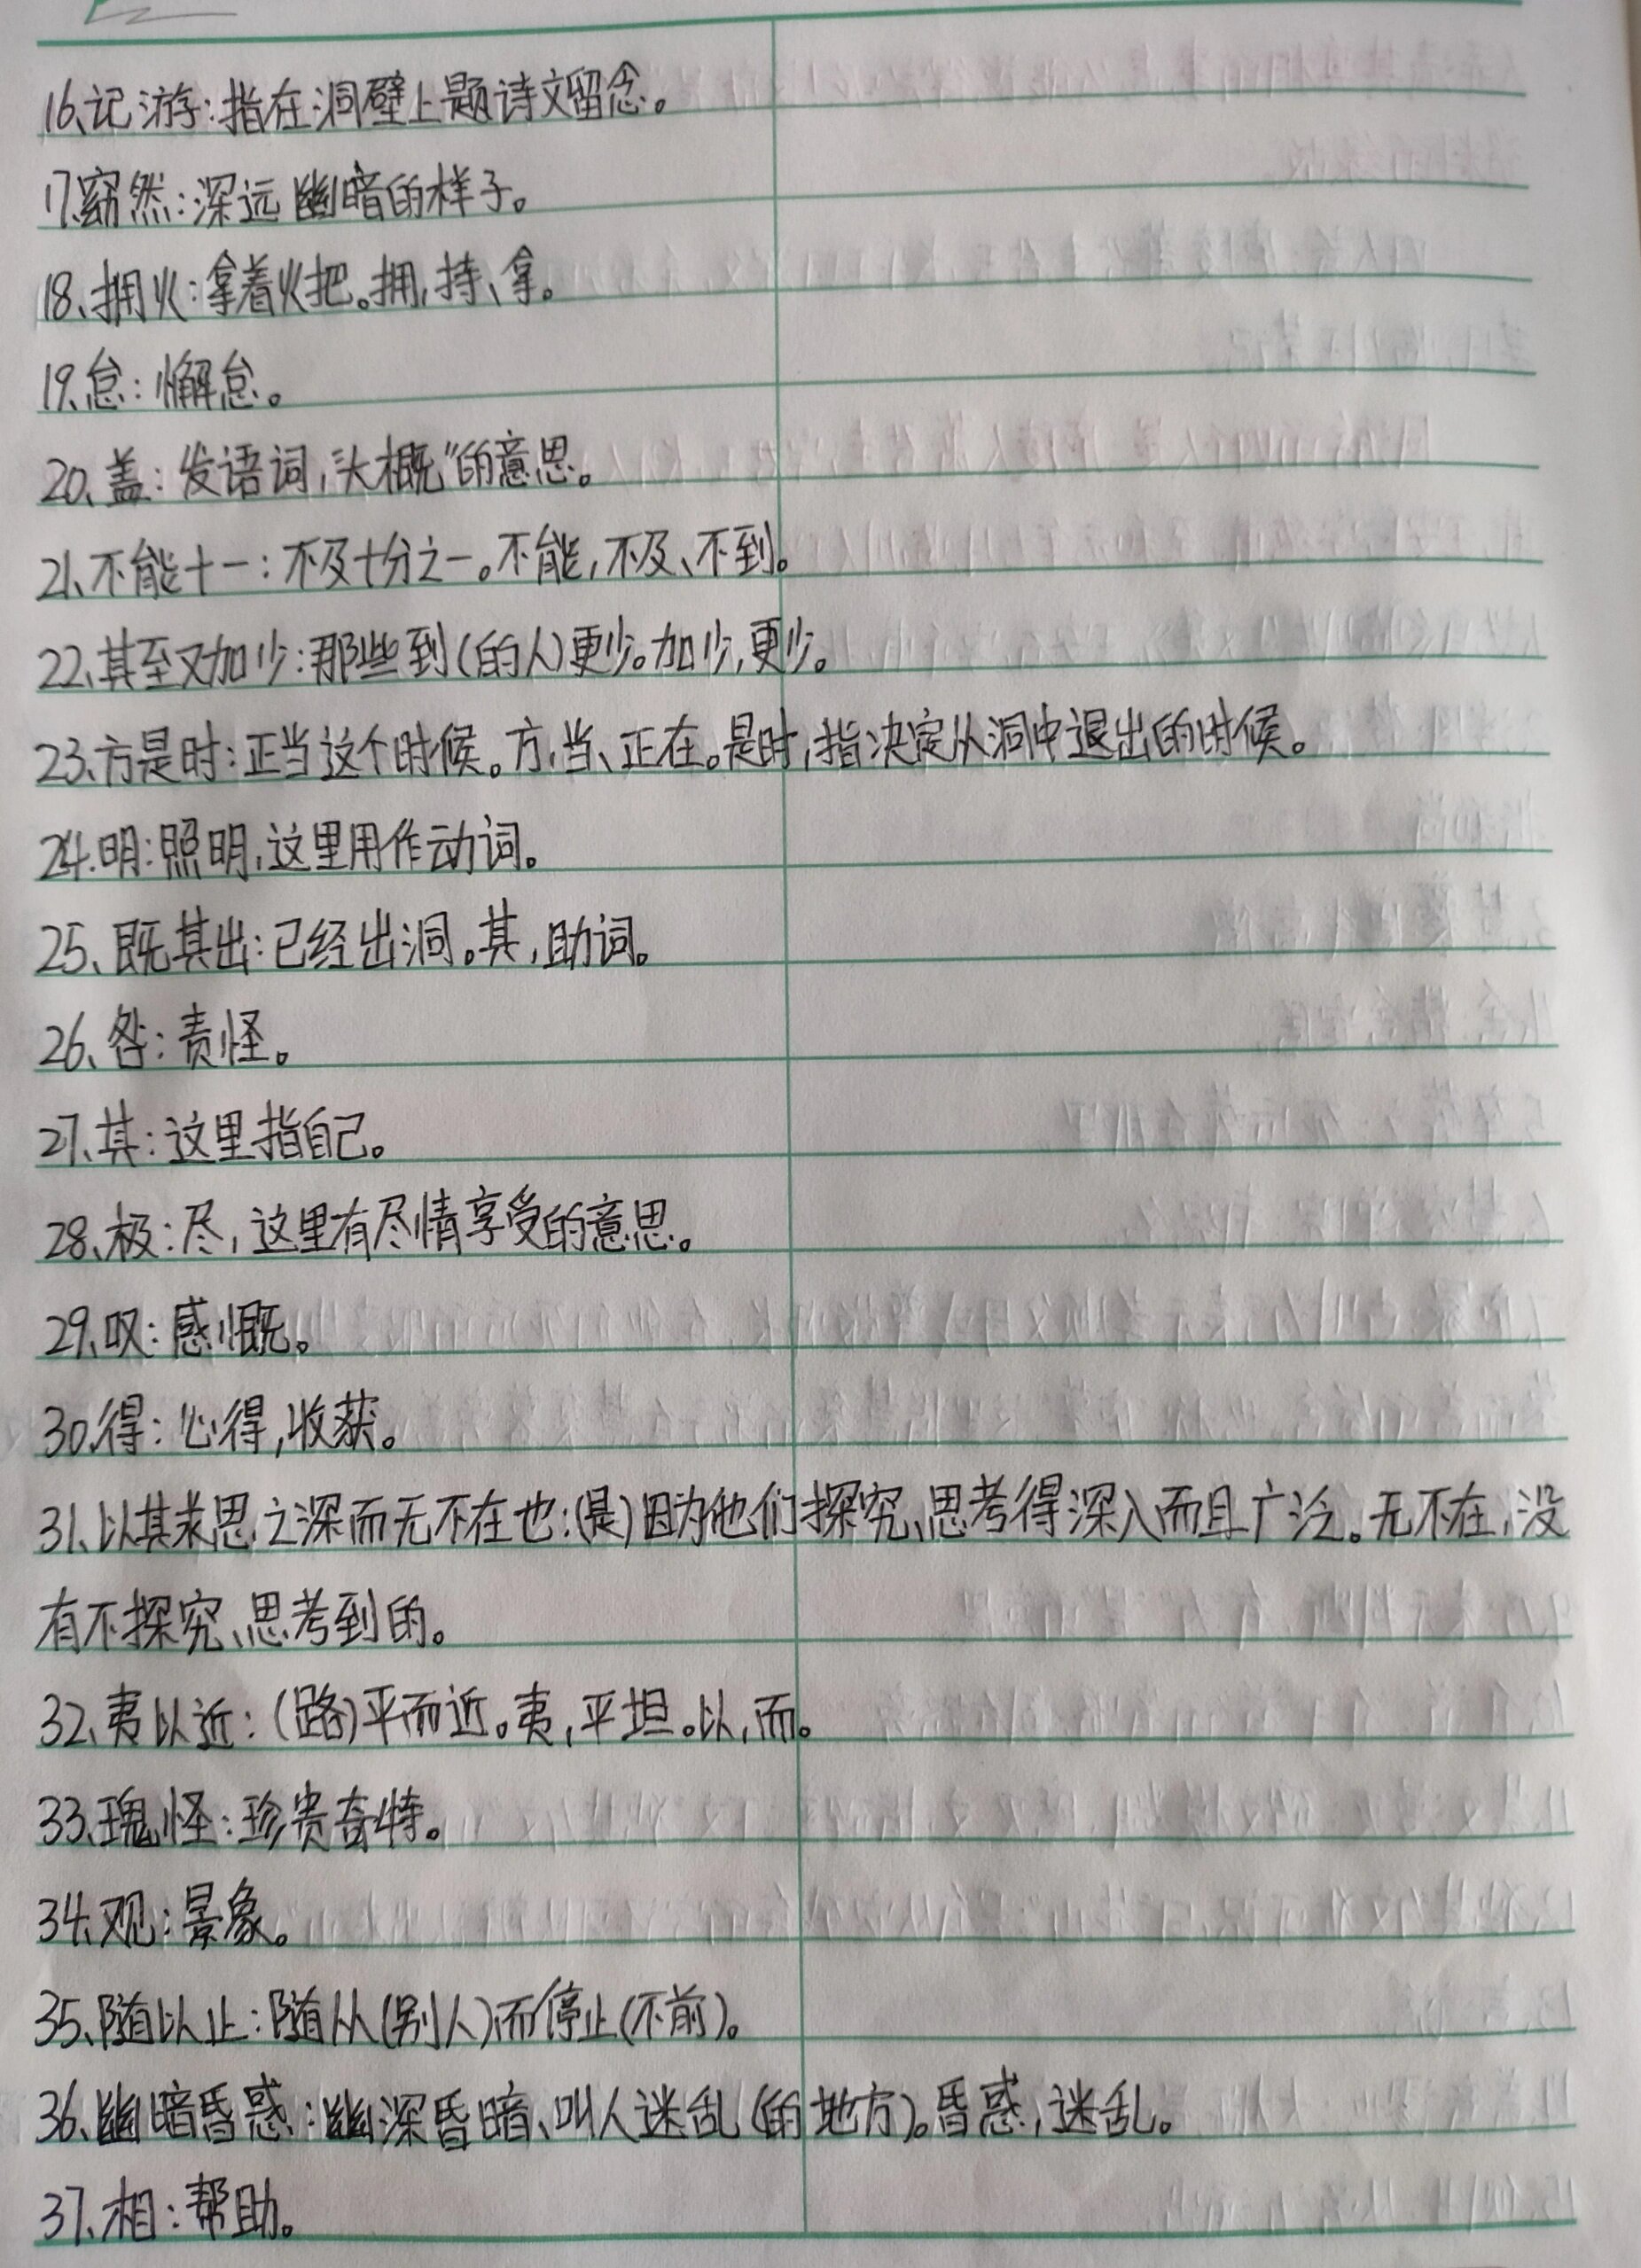 16、记游:指在洞壁上题诗文留念。
17、窈然:深远幽暗的样子。
18、拥火:拿着火把。拥,持、拿。
19、怠:懈怠。
20、盖:发语词,“大概”的意思。
21、不能十一:不及十分之一。不能,不及、不到。
22、其至又加少:那些到(的人)更少。加少,更少。
23、方是时:正当这个时候。方,当、正在。是时,指决定从洞中退出的时候。
24、明:照明,这里用作动词。
25、既其出:已经出洞。其,助词。
26、咎:责怪。
27、其:这里指自己。
28、极:尽,这里有尽情享受的意思。
29、叹:感慨。
30、得:心得,收获。
31、以其求思之深而无不在也:(是)因为他们探究、思考得深入而且广泛。无不在,没
有不探究、思考到的。
32、夷以近:(路)平而近。夷,平坦。以,而。
33、瑰怪:珍贵奇特。
34、观:景象。
35、随以止:随从(别人)而停止(不前)。
36、幽暗昏惑:幽深昏暗、叫人迷乱(的地方)。昏惑,迷乱。
37、相:帮助。